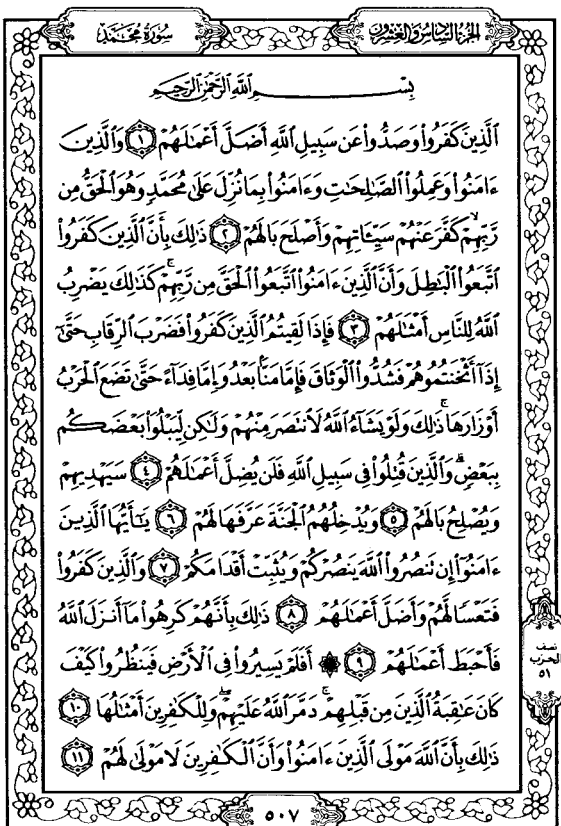 الجزء السادس والعشرون
سورة محمد
بِسْمِ ٱللَّهِ ٱلرَّحْمَٰنِ ٱلرَّحِيمِ
ٱلَّذِينَ كَفَرُواْ وَصَدُّواْ عَن سَبِيلِ ٱللَّهِ أَضَلَّ أَعْمَٰلَهُمْ ١ وَٱلَّذِينَ
ءَامَنُواْ وَعَمِلُواْ ٱلصَّٰلِحَٰتِ وَءَامَنُواْ بِمَا نُزِّلَ عَلَىٰ مُحَمَّدٍ وَهُوَ ٱلْحَقُّ مِن
رَّبِّهِمْ ۙ كَفَّرَ عَنْهُمْ سَيِّـَٔاتِهِمْ وَأَصْلَحَ بَالَهُمْ ٢ ذَٰلِكَ بِأَنَّ ٱلَّذِينَ كَفَرُواْ
ٱتَّبَعُواْ ٱلْبَٰطِلَ وَأَنَّ ٱلَّذِينَ ءَامَنُواْ ٱتَّبَعُواْ ٱلْحَقَّ مِن رَّبِّهِمْ ۚ كَذَٰلِكَ يَضْرِبُ
ٱللَّهُ لِلنَّاسِ أَمْثَٰلَهُمْ ٣ فَإِذَا لَقِيتُمُ ٱلَّذِينَ كَفَرُواْ فَضَرْبَ ٱلرِّقَابِ حَتَّىٰٓ
إِذَآ أَثْخَنتُمُوهُمْ فَشُدُّواْ ٱلْوَثَاقَ فَإِمَّا مَنَّۢا بَعْدُ وَإِمَّا فِدَآءً حَتَّىٰ تَضَعَ ٱلْحَرْبُ
أَوْزَارَهَا ۚ ذَٰلِكَ وَلَوْ يَشَآءُ ٱللَّهُ لَٱنتَصَرَ مِنْهُمْ وَلَٰكِن لِّيَبْلُوَاْ بَعْضَكُم
بِبَعْضٍ ۗ وَٱلَّذِينَ قُتِلُواْ فِى سَبِيلِ ٱللَّهِ فَلَن يُضِلَّ أَعْمَٰلَهُمْ ٤ سَيَهْدِيهِمْ
وَيُصْلِحُ بَالَهُمْ ٥ وَيُدْخِلُهُمُ ٱلْجَنَّةَ عَرَّفَهَا لَهُمْ ٦ يَٰٓأَيُّهَا ٱلَّذِينَ
ءَامَنُوٓاْ إِن تَنصُرُواْ ٱللَّهَ يَنصُرْكُمْ وَيُثَبِّتْ أَقْدَامَكُمْ ٧ وَٱلَّذِينَ كَفَرُواْ
فَتَعْسًا لَّهُمْ وَأَضَلَّ أَعْمَٰلَهُمْ ٨ ذَٰلِكَ بِأَنَّهُمْ كَرِهُواْ مَآ أَنزَلَ ٱللَّهُ
فَأَحْبَطَ أَعْمَٰلَهُمْ ٩ ۞ أَفَلَمْ يَسِيرُواْ فِى ٱلْأَرْضِ فَيَنظُرُواْ كَيْفَ
كَانَ عَٰقِبَةُ ٱلَّذِينَ مِن قَبْلِهِمْ ۚ دَمَّرَ ٱللَّهُ عَلَيْهِمْ ۖ وَلِلْكَٰفِرِينَ أَمْثَٰلُهَا ١٠
ذَٰلِكَ بِأَنَّ ٱللَّهَ مَوْلَى ٱلَّذِينَ ءَامَنُواْ وَأَنَّ ٱلْكَٰفِرِينَ لَا مَوْلَىٰ لَهُمْ ١١
نصف
الحزب
٥١
٥٠٧